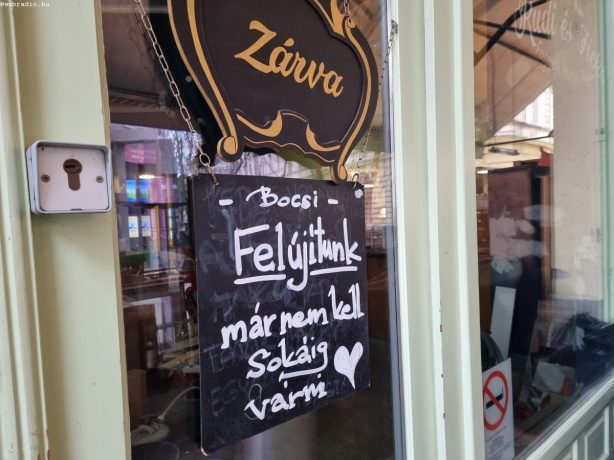 ©webradio.hu
Zárva
- Bocsi -
Felújítunk
már nem kell
sokáig
várni
Rudi és